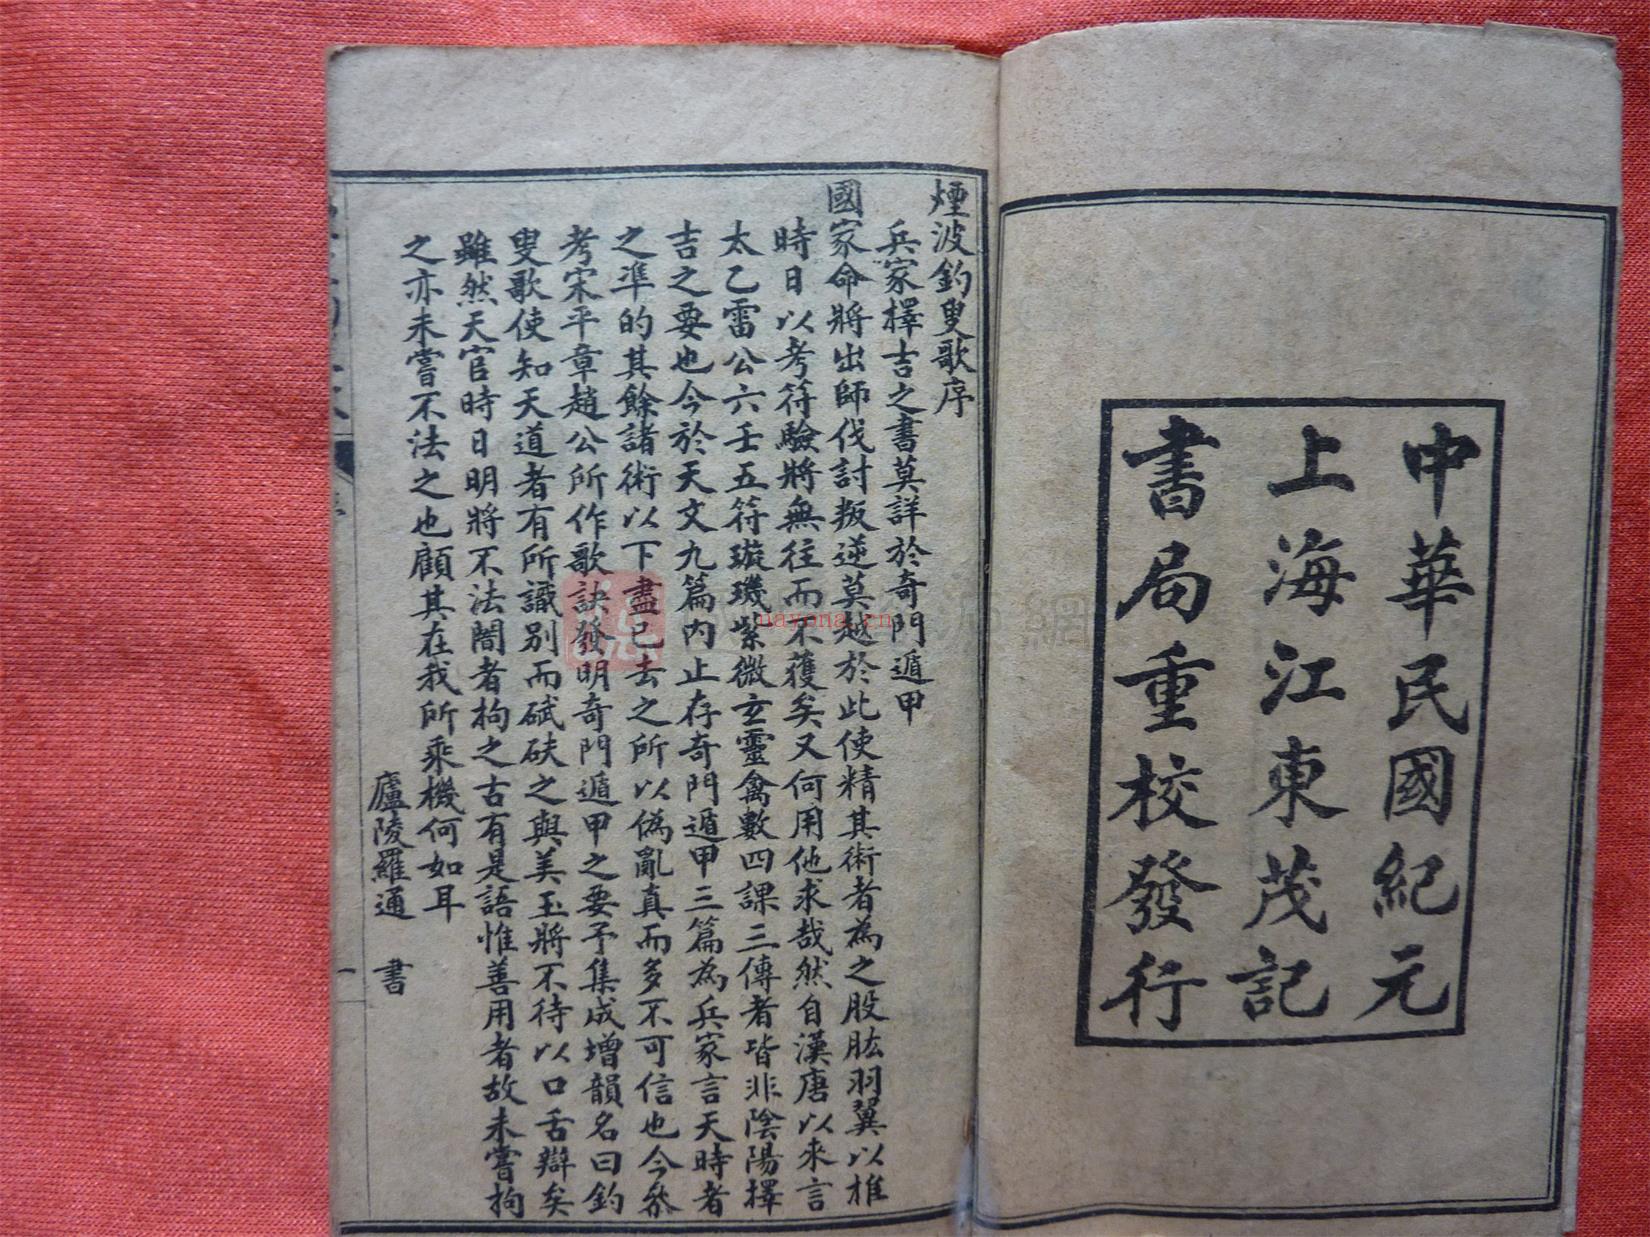 中華民國紀元
上海江東茂記
書局重校發行
煙波釣叟歌序
兵家擇吉之書莫詳於奇門遁甲
國家命將出師伐討叛逆莫越於此使精其術者為之股肱羽翼以推
時日以考符驗將無往而不獲矣又何用他求哉然自漢唐以來言
太乙雷公六壬五符璇璣紫微玄靈禽數四課三傳者皆非陰陽擇
吉之要也今於天文九篇內止存奇門遁甲三篇為兵家言天時者
之準的其餘諸術以下盡已去之所以偽亂真而多不可信也今叅
考宋平章趙公所作歌訣發明奇門遁甲之要予集成增韻名曰釣
叟歌使知天道者有所識別而碔砆之與美玉將不待以口舌辯矣
雖然天官時日明將不法闇者拘之古有是語惟善用者故未嘗拘
之亦未嘗不法之也顧其在我所乘機何如耳
廬陵羅通 書
一
uayona.cn